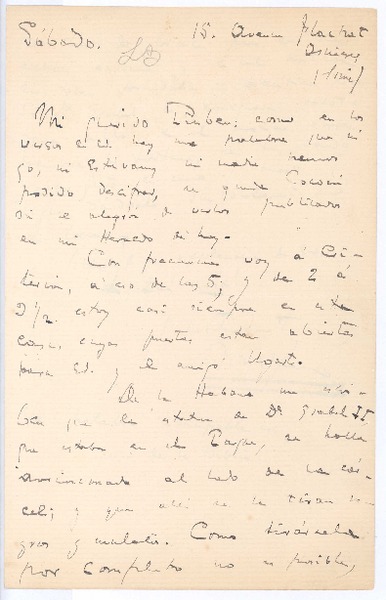 Sábado. 15. Avenue
Mi querido Ruben: como en los
versos en él hay una palabra que ni
yo, ni Estévanez, ni nadie hemos
podido descifrar,
de verlos publicados
en mi Heraldo de hoy.-
Con frecuencia voy á
á eso de las 5; y de 2 á
2 1/2 estoy casi siempre en esta
casa, cuyas puertas estan abiertas
para Ud. y el amigo Ugarte.
De la Habana me escri-
ben que la estatua de Dª Isabel II
que estaba en el Parque, se halla
arrinconada al lado de la cár-
cel; y que allí se la tiran ne-
gros y mulatos. Como tirársela
por completo no es posible,